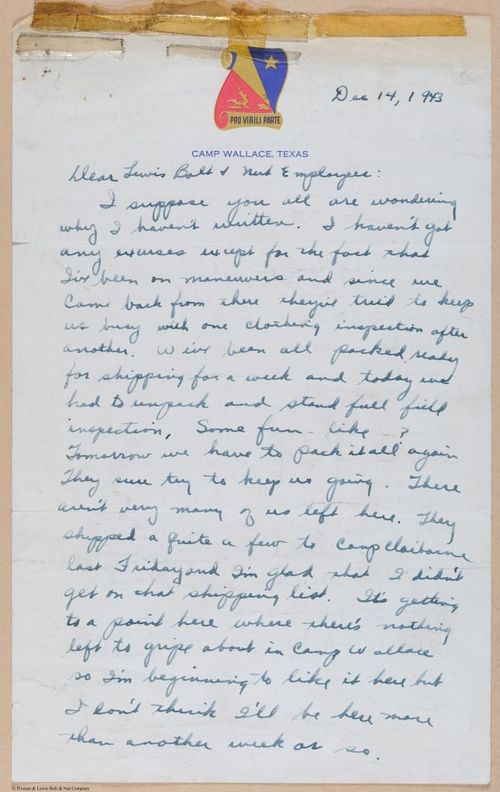 PRO VIRILI PARTE
Dec 14, 1943
CAMP WALLACE, TEXAS
Dear Lewis Bolt & Nut Employees:
I suppose you all are wondering
why I haven't written. I haven't got
any excuses except for the fact that
I've been on maneuvers and since we
came back from there they've tried to keep
us busy with one clothing inspection after
another. We've been all packed ready
for shipping for a week and today we
had to unpack and stand full field
inspection, Some fun - like - ?
Tomorrow we have to pack it all again
They sure try to keep us going. There
aren't very many of us left here. They
shipped a quite a few to Camp Claiborne
last Friday and I'm glad that I didn't
get on that shipping list. It's getting
to a point here where there's nothing
left to gripe about in Camp Wallace
so I'm beginning to like it here but
I don't think I'll be here more
than another week or so.
© Pioneer & Lewis Bolt & Nut Company